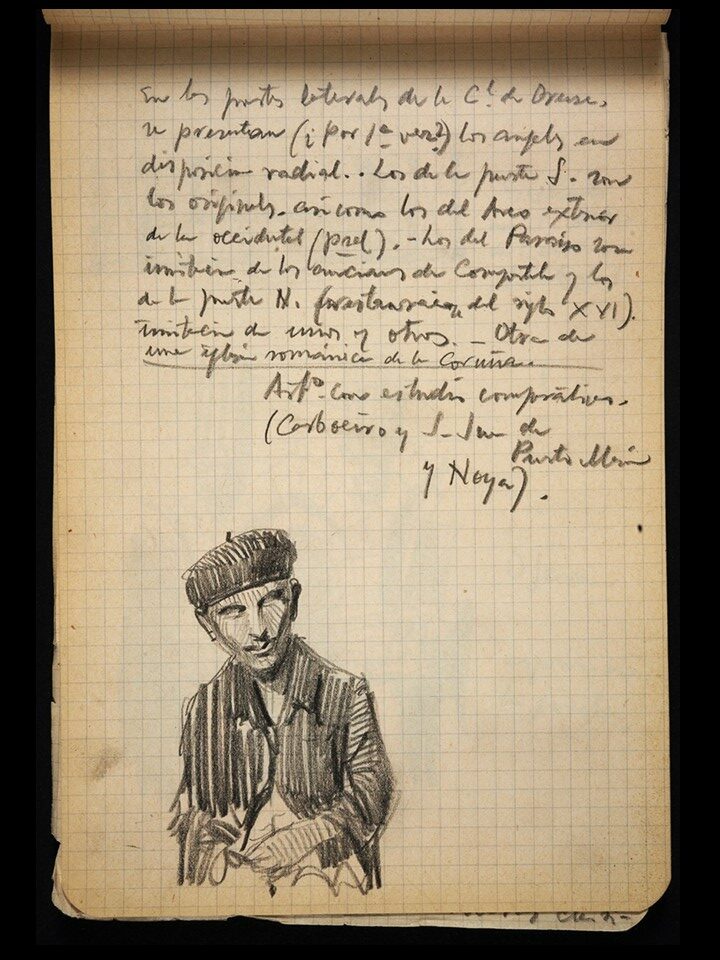 En las puertas laterales de la C.l de Orense,
se presentan (¿por 1ª vez?) los angeles en
disposición radial.. Los de la puerta S. son
los originales. asi como los del Arco exterior
de la occidental (pral). - Los del Paraiso son
imitación de los ancianos de Compostela y los
de la puerta N. (restauración del siglo XVI).
imitación de unos y otros. _ Otra de
una iglesia románica de la Coruña.
Artº como estudio comparativo.
(Carboeiro y S. Juan de
Puerto Marin
y Noya).